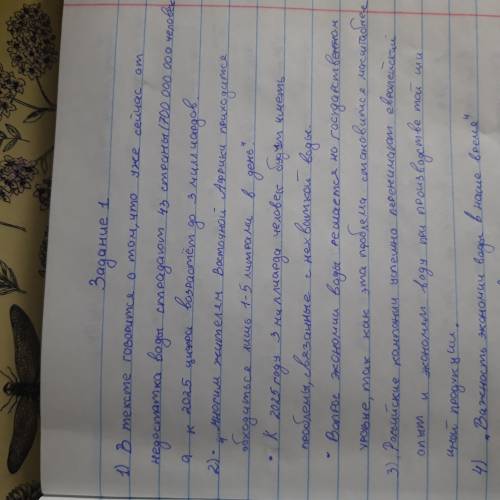 Задание 1
1) В тексте говорится о том, что уже сейчас от
недостатка воды страдают 43 страны (700 000 000 человек
а к 2025 цифра возрастёт до 3 миллиардов.
2) • "многим жителем Восточной Африки приходится
обходиться лишь 1-5 литрами в день"
• К 2025 году 3 миллиарда человек будут иметь
проблемы, связанные с нехваткой воды.
• Вопрос экономии воды решается на государственном
уровне, так как эта проблема становится масштабнее
3) Российские компании успешно перенимают европейский
опыт и экономят воду при производстве той или
иной продукции.
4) "Важность экономии воды в наше время"